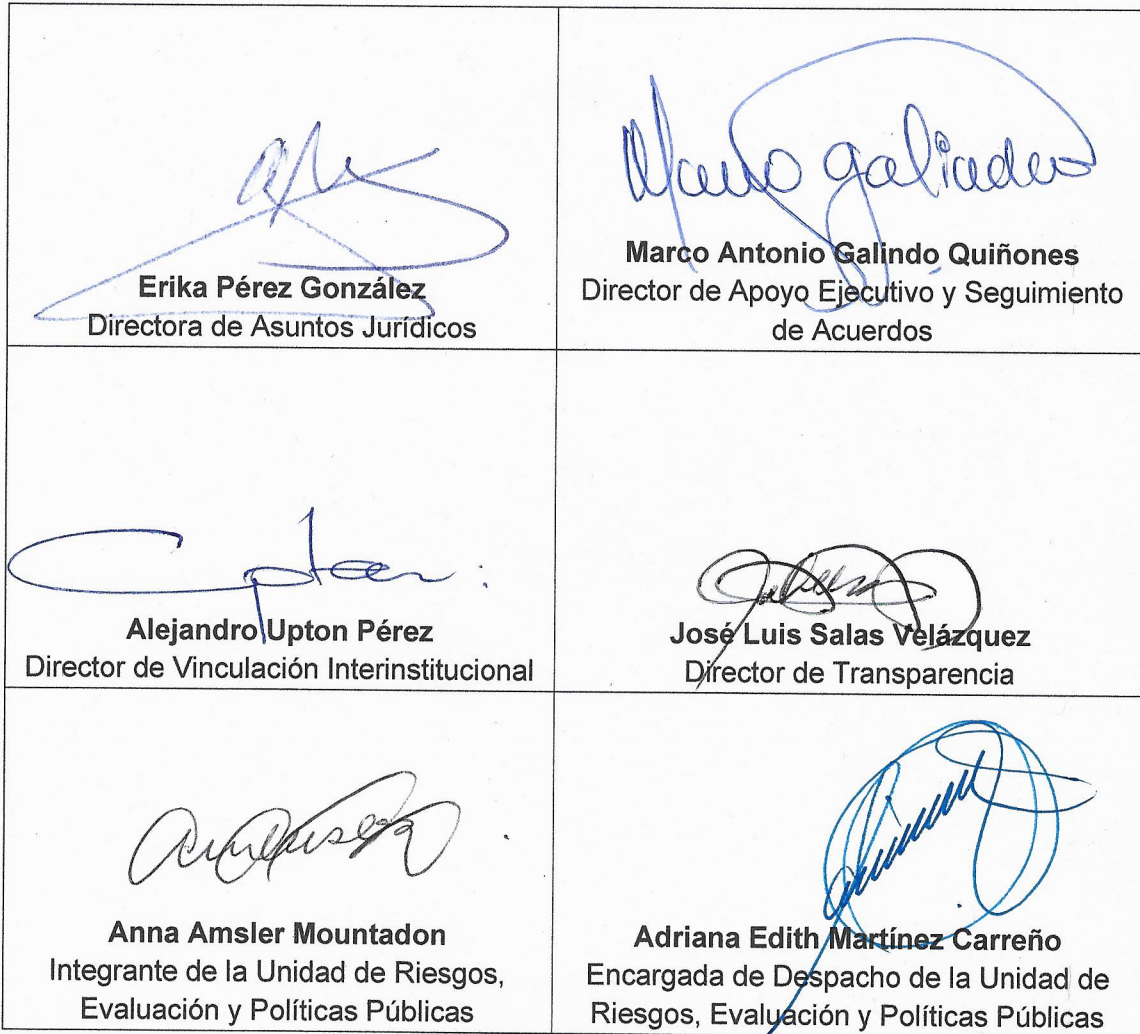 Marco Galindo
Erika Pérez González
Directora de Asuntos Jurídicos
Marco Antonio Galindo Quiñones
Director de Apoyo Ejecutivo y Seguimiento
de Acuerdos
Upton
Alejandro Upton Pérez
Director de Vinculación Interinstitucional
José Luis Salas Velázquez
Director de Transparencia
Anna Amsler Mountadon
Integrante de la Unidad de Riesgos,
Evaluación y Políticas Públicas
Adriana Edith Martínez Carreño
Encargada de Despacho de la Unidad de
Riesgos, Evaluación y Políticas Públicas